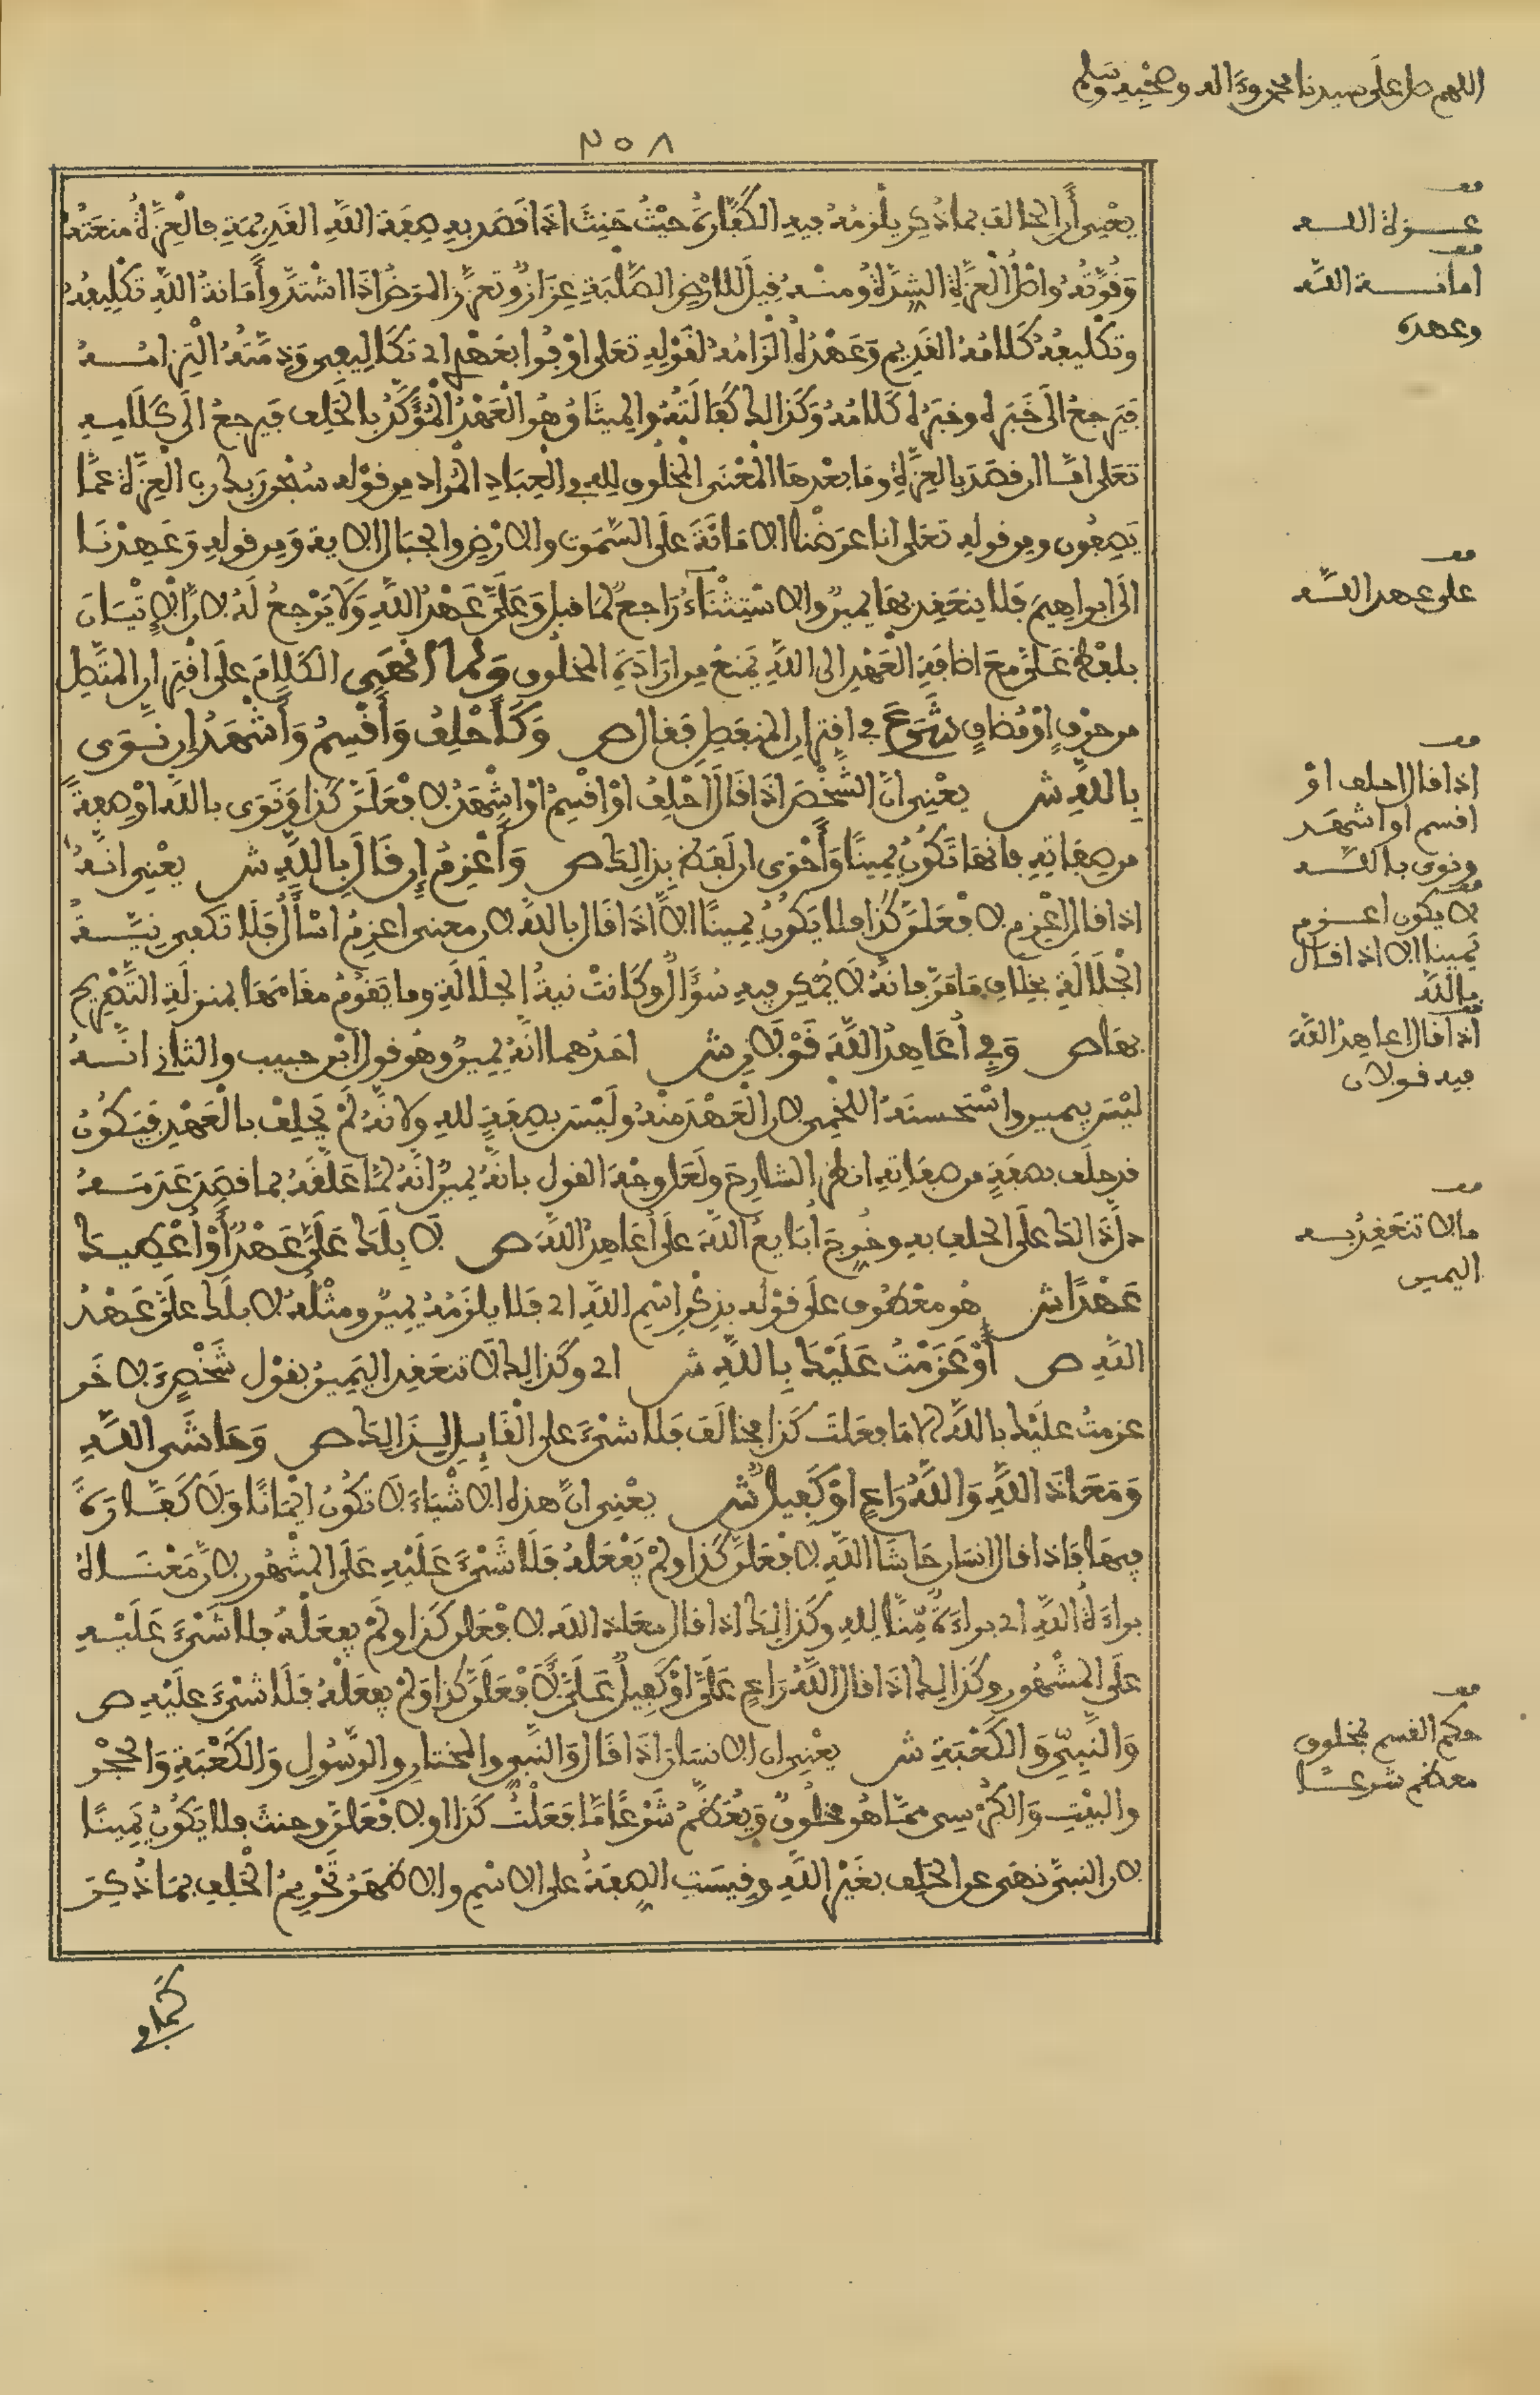 اللهم صل على سيدنا محمد وءاله وصحبه وسلم
٣٥٨
يعني أن الحالف بما ذكر يلزمه فيه الكفارة حيث حنث اذا قصد به صفة الله القديمة فالعزة منعته
وقوته واصل العزة الشدة ومنه قيل للارض الصلبة عزاز وتعزز المرض اذا اشتد وأمانة الله تكليفه
وتكليفه كلامه القديم وعهده الزامه لقوله تعلى اوفوا بعهدي اي تكاليفي وذمته التزامه
فيرجع الى خبره وخبره كلامه وكذالك كفالته والميثاق هو العهد المؤكد بالحلف فيرجع الى كلامه
تعلى اما ان قصد بالعزة وما بعدها المعنى المخلوق لله في العباد المراد من قوله سبحن ربك رب العزة عما
يصفون ومن قوله تعلى انا عرضنا الامانة على السموت والارض والجبال الاية ومن قوله وعهدنا
الى ابراهيم فلا ينعقد بها يمين والاستثناء راجع لما قبل وعلي عهد الله ولا يرجع له لان الاتيان
بلفظ علي مع اضافة العهد الى الله يمنع من ارادة المخلوق ولما انهى الكلام على اقتران المتصل
من حرف او مضاف شرع في اقتران المنفصل فقال ص وكأحلف وأقسم وأشهد إن نوى
بالله ش يعني ان الشخص اذا قال احلف او اقسم او اشهد لافعلن كذا ونوى بالله او صفة
من صفاته فانها تكون يمينا وأحرى ان لفظ بذالك ص وأعزم إن قال بالله ش يعني انه
اذا قال اعزم لافعلن كذا فلا يكون يمينا الا اذا قال بالله لان معنى اعزم اسأل فلا تكفي نية
الجلالة بخلاف ما مر فانه لا يمكن فيه سؤال وكانت نية الجلالة وما يقوم مقامها بمنزلة التصريح
بها ص وفي أعاهد الله قولان ش احدهما انه يمين وهو قول ابن حبيب والثاني انه
ليس بيمين واستحسنه اللخمي لان العهد منه وليس بصفة لله ولانه لم يحلف بالعهد فيكون
قد حلف بصفة من صفاته انظر الشارح ولعل وجه القول بانه يمين انه لما علقه بما قصد عدمه
دل ذالك على الحلف به وخرج أبايع الله على أعاهد الله ص لا بلك علي عهد أو أعطيك
عهدا ش هو معطوف على قوله بذكر اسم الله اي فلا يلزمه يمين ومثله لا بلك علي عهد
الله ص أو عزمت عليك بالله ش اي وكذالك لا تنعقد اليمين بقول شخص لاخر
عزمت عليك بالله الا ما فعلت كذا فخالف فلا شيء على القايل لذالك ص وحاشى الله
ومعاذ الله والله راع او كفيل ش يعني ان هذه الاشياء لا تكون ايمانا ولا كفارة
فيها فاذا قال انسان حاشا الله لافعلن كذا ولم يفعله فلا شيء عليه على المشهور لان معناه
براءة الله اي براءة منا لله وكذالك اذا قال معاذ الله لافعلن كذا ولم يفعله فلا شيء عليه
على المشهور وكذالك اذا قال الله راع علي او كفيل علي لافعلن كذا ولم يفعله فلا شيء عليه ص
والنبي والكعبة ش يعني ان الانسان اذا قال والنبي والمختار والرسول والكعبة والحجر
والبيت والكرسي مما هو مخلوق ويعظم شرعا ما فعلت كذا او لافعلن وحنث فلا يكون يمينا
لان النبي نهى عن الحلف بغير الله وقيست الصفة على الاسم والاظهر تحريم الحلف بما ذكر
كما في
قف
عزة الله
قف
امانة الله
وعهده
قف
علي عهد الله
قف
اذا قال احلف او
اقسم او اشهد
ونوى بالله
قف
لا يكون اعزم
يمينا الا اذا قال
بالله
قف
اذا قال اعاهد الله
فيه قولان
قف
ما لا تنعقد به
اليمين
قف
حكم القسم بمخلوق
معظم شرعا